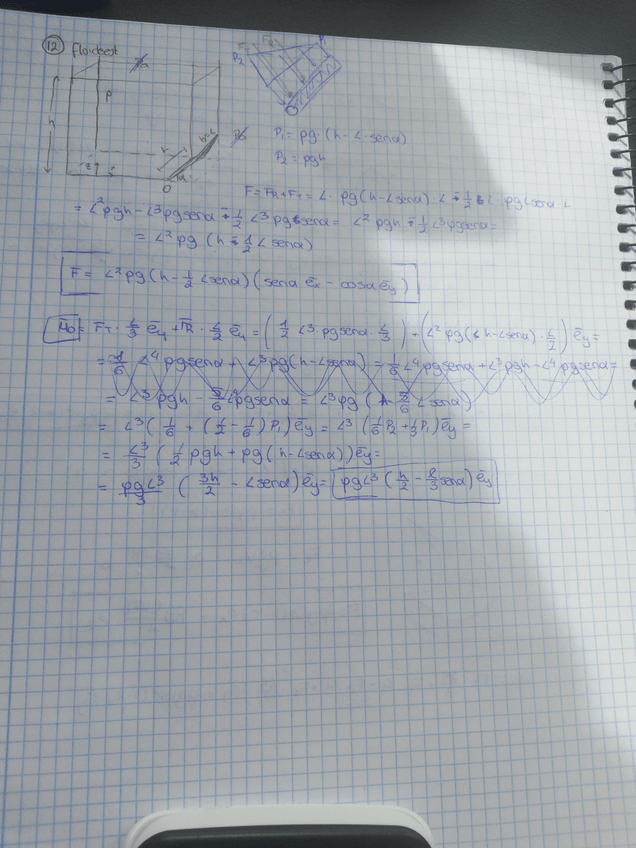 12 fluidest
Pa
P2 P1
h
ρ
Pa
P1 = ρg·(h-L·senα)
P2 = ρgh
z
L
O
α
F = FR+FT = L·ρg(h-Lsenα)·L + 1/2 L·ρgLsenα·L
= L²ρgh - L³ρgsenα + 1/2 L³ρgsenα = L²ρgh - 1/2 L³ρgsenα =
= L²ρg (h - 1/2 Lsenα)
F = L²ρg(h - 1/2 Lsenα)(senα ēx - cosα ēy)
Mo = FT · L/3 ēy + FR · L/2 ēy = (1/2 L³·ρgsenα · L/3) + (L²ρg(h-Lsenα)·L/2) ēy =
= 1/6 L⁴ρgsenα + L³ρg(h-Lsenα) = 1/6 L⁴ρgsenα + L³ρgh - L⁴ρgsenα =
= L³ρgh - 5/6 L⁴ρgsenα = L³ρg (h - 5/6 Lsenα)
= L³(1/6 + (1/2 - 1/6) P1) ēy = L³ (1/6 P2 + 1/3 P1) ēy =
= L³/3 (1/2 ρgh + ρg(h-Lsenα)) ēy =
= ρgL³/3 (3h/2 - Lsenα) ēy = ρgL³ (h/2 - L/3 senα) ēy